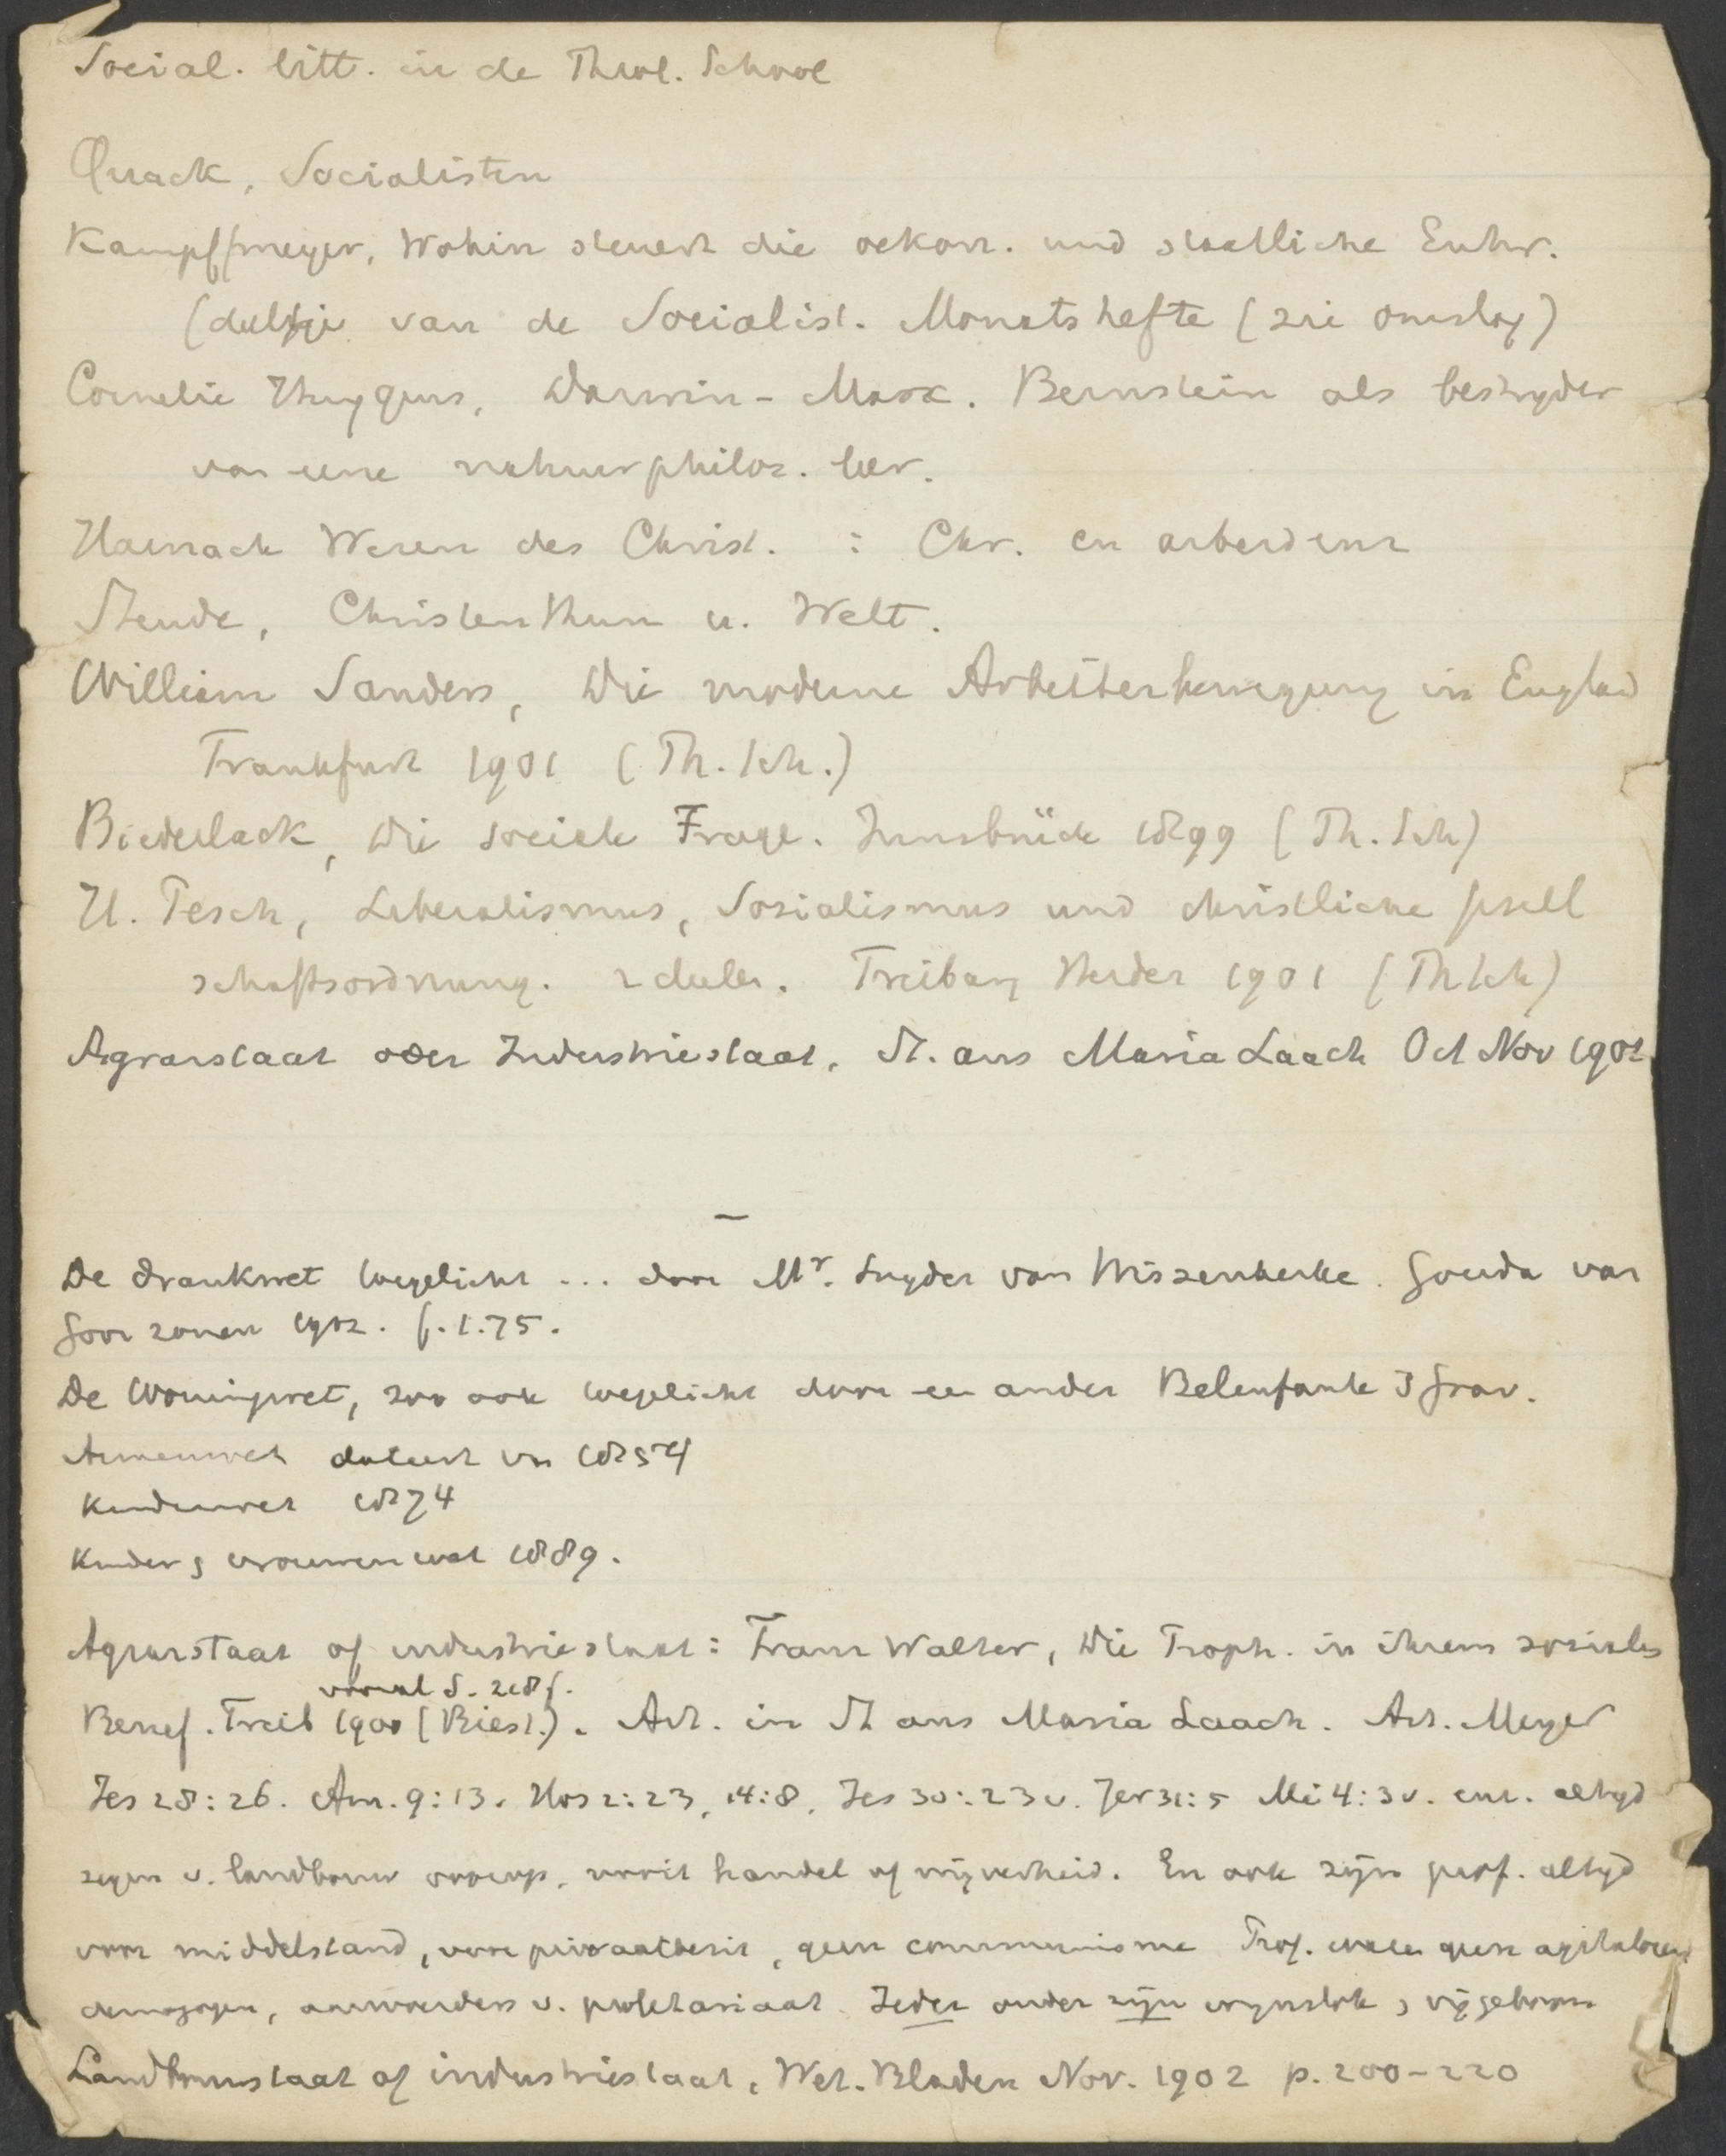 Social. litt. in de Theol. School
Quack, Socialisten
Kampffmeyer, Wohin steuert die oekon. und staatliche Entw.
(deeltje van de Socialist. Monatshefte (zie omslag)
Cornelie Huygens, Darwin - Marx. Bernstein als bestryder
van eene natuurphilos. leer.
Harnack Wesen des Christ. : Chr. en arbeid enz
Steude, Christenthum u. Welt.
William Sanders, Die moderne Arbeiterbewegung in England
Frankfurt 1901 (Th. Sch.)
Biederlack, Die sociale Frage. Innsbrück 1899 (Th. Sch)
H. Pesch, Liberalismus, Sozialismus und christliche Gesell
schaftsordnung. 2 deelen. Freiburg Herder 1901 (Th Sch)
Agrarstaat oder Industriestaat. St. aus Maria Laach Oct Nov 1901
De drankwet toegelicht ... door Mr. Snyder van Wissenkerke. Gouda van
Goor zonen 1902. f. 1.75.
De Woningwet, zoo ook toegelicht door een ander Belenfante 's Grav.
Armenwet dateert van 1854
Kinderwet 1874
Kinder & vrouwenwet 1889.
Agrarstaat of industriestaat: Franz Walter, Die Proph. in ihrem sozialen
vooral S. 218 f.
Beruf. Freib 1900 (Biest.). Art. in St aus Maria Laach. Art. Meyer
Jes 28:26. Am. 9:13. Hos 2:23, 14:8, Jes 30:23 v. Jer 31:5 Mi 4:3 v. enz. altyd
zegen v. landbouw voorop, nooit handel of nijverheid. En ook zijn prof. altyd
voor middelstand, voor privaatbezit, geen communisme Prof. waren geen agitatoren
demagogen, aanvoerders v. proletariaat. Ieder onder zijn wynstok & vijgeboom
Landbouwstaat of industriestaat, Wet. Bladen Nov. 1902 p. 200-220